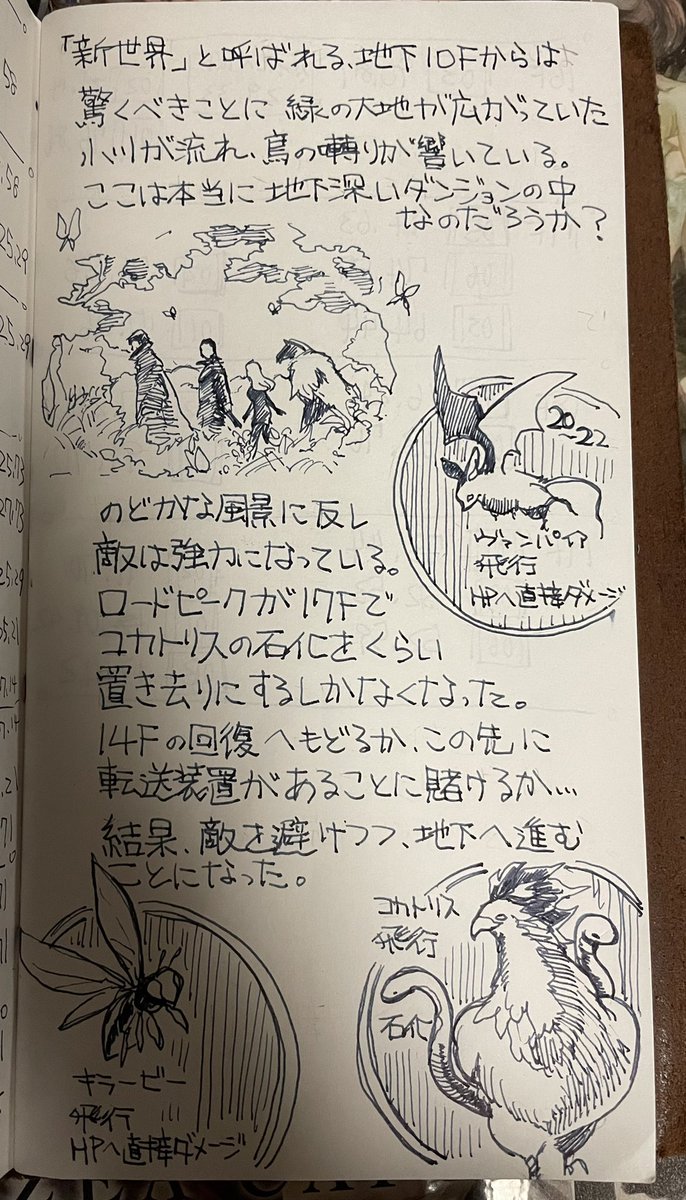 「新世界」と呼ばれる、地下10Fからは
驚くべきことに 緑の大地が広がっていた
小川が流れ、鳥の囀りが響いている。
ここは本当に地下深いダンジョンの中
なのだろうか?
20~22
ヴァンパイア
飛行
HPへ直接ダメージ
のどかな風景に反し
敵は強力になっている。
ロードピークが17Fで
コカトリスの石化をくらい
置き去りにするしかなくなった。
14Fの回復へもどるか、この先に
転送装置があることに賭けるか…
結果、敵を避けつつ、地下へ進む
ことになった。
コカトリス
飛行
石化
キラービー
飛行
HPへ直接ダメージ
58
.58
25.29
25.29
25,73
27,73
25.29
05,21
7.14
7.14
,21
71
71